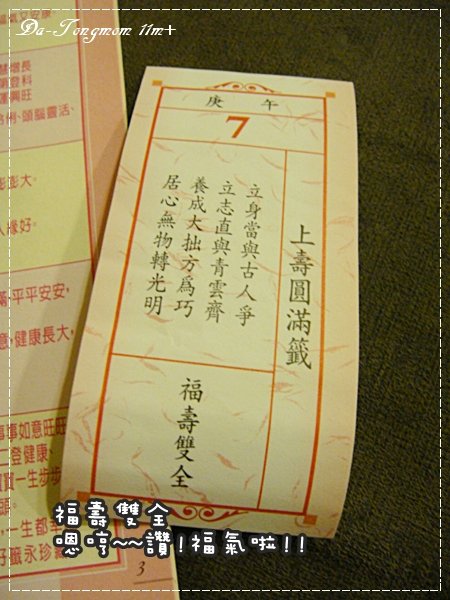 Da-Tongmom 11m+
庚午
7
上壽圓滿籤
立身當與古人爭
立志直與青雲齊
養成大拙方為巧
居心無物轉光明
福壽雙全
增長
登科
興旺
頭腦靈活、
彭大。
緣好。
平平安安,
健康長大,
事如意旺旺
登健康、
一生步步
一生都
籤永珍
3
福壽雙全
嗯哼~~讚!福氣啦!!